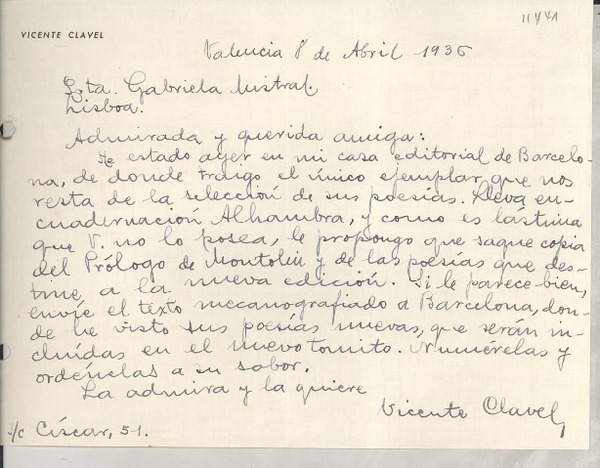 11441
VICENTE CLAVEL
Valencia 8 de Abril 1936
Srta. Gabriela Mistral.
Lisboa.
Admirada y querida amiga:
He estado ayer en mi casa editorial de Barcelo-
na, de donde traigo el único ejemplar que nos
resta de la selección de sus poesías. Lleva en-
cuadernación Alhambra, y como es lástima
que V. no lo posea, le propongo que saque copia
del Prólogo de Montoliú y de las poesías que des-
tine a la nueva edición. Si le parece bien,
envíe el texto mecanografiado a Barcelona, don-
de he visto sus poesías nuevas, que serán in-
cluídas en el nuevo tomito. Numérelas y
ordénelas a su sabor.
La admira y la quiere
Vicente Clavel
s/c Císcar, 51.